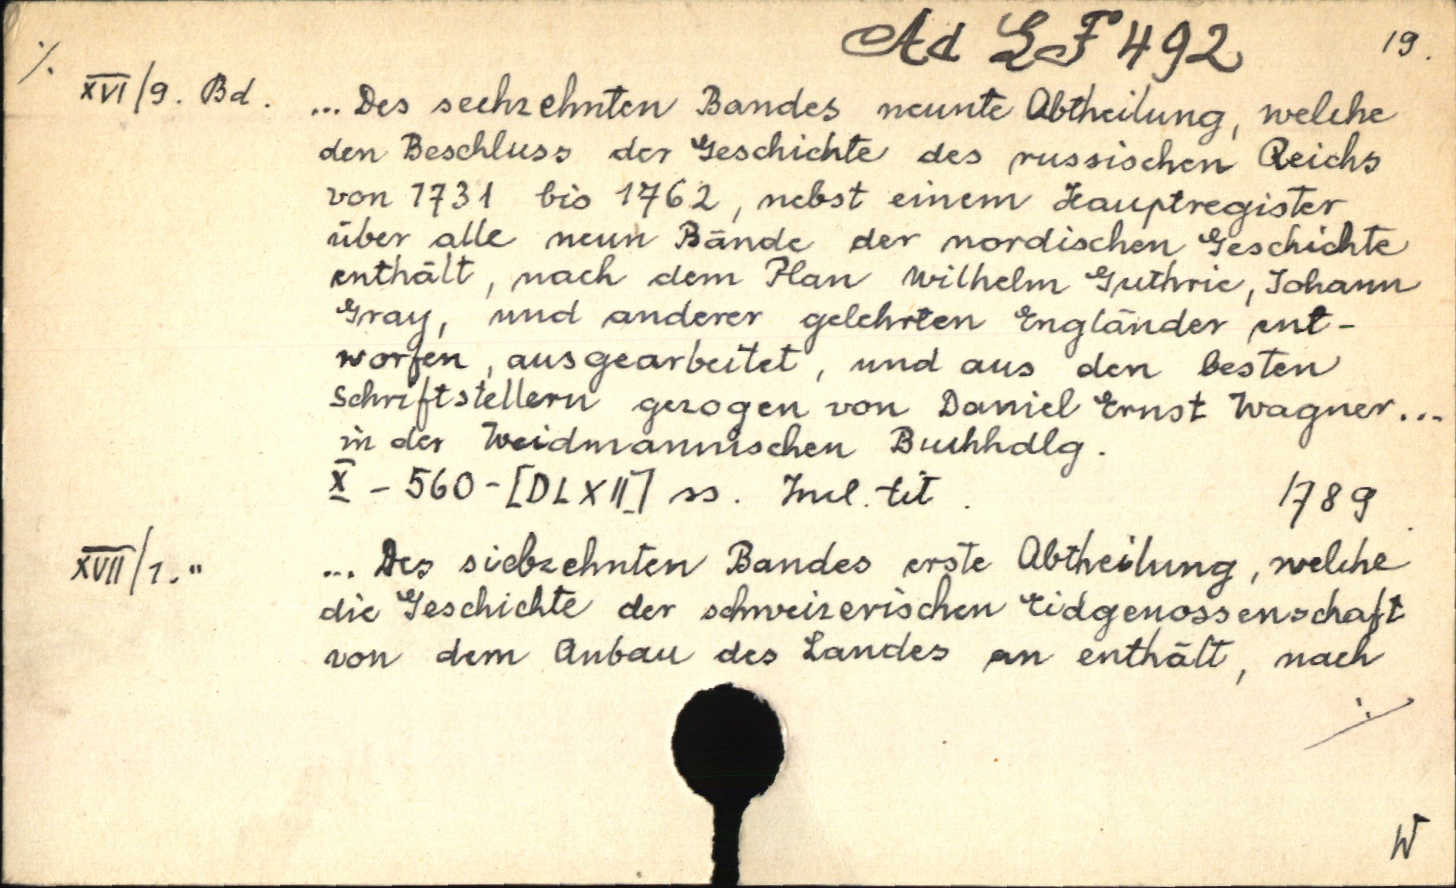 Ad LF 492 19.
·/.
XVI/9. Bd. ... Des sechzehnten Bandes neunte Abtheilung, welche
den Beschluss der Geschichte des russischen Reichs
von 1731 bis 1762, nebst einem Hauptregister
über alle neun Bände der nordischen Geschichte
enthält, nach dem Plan Wilhelm Guthrie, Johann
Gray, und anderer gelehrten Engländer ent-
worfen, ausgearbeitet, und aus den besten
Schriftstellern gezogen von Daniel Ernst Wagner...
in der Weidmannischen Buchhdlg.
X - 560 - [DLXII] ss. Incl. tit. 1789
XVII/1. " ... Des siebzehnten Bandes erste Abtheilung, welche
die Geschichte der schweizerischen Eidgenossenschaft
von dem Anbau des Landes an enthält, nach
·/.
W